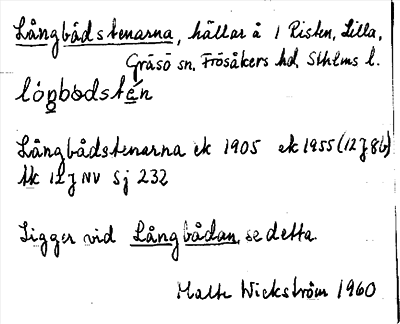 Långbådstenarna, hällar å 1 Risten, Lilla,
Gräsö sn, Frösåkers hd, Sthlms l.
Långbådstenarna ek 1905 ek 1955 (12J8b)
tk 12J NV Sj 232
Ligger vid Långbådan, se detta.
Malte Wickström 1960